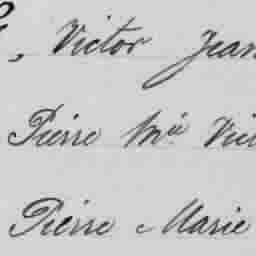 , Victor Jean
Pierre Mie Vic
Pierre Marie